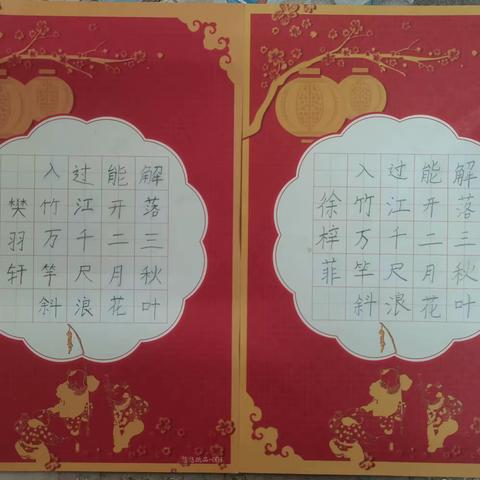 解落三秋叶
能开二月花
过江千尺浪
入竹万竿斜
樊羽轩
解落三秋叶
能开二月花
过江千尺浪
入竹万竿斜
徐梓菲